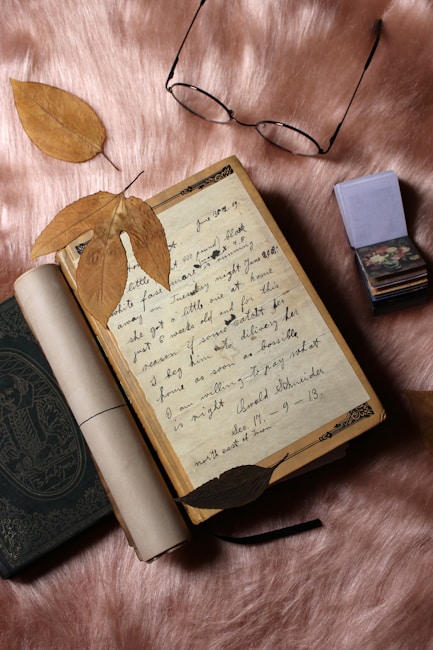 June 30th 19
900 pound black
white face mare is running
away on Tuesday night June 28th
she got a little one at home
just 6 weeks old and for this
reason if some catsht her
I beg him to dilivery her
home as soon as bossible
I am willing to pay what
is right Oswald Schneider
Sec. 17. - 9 - 13.
north east of Town